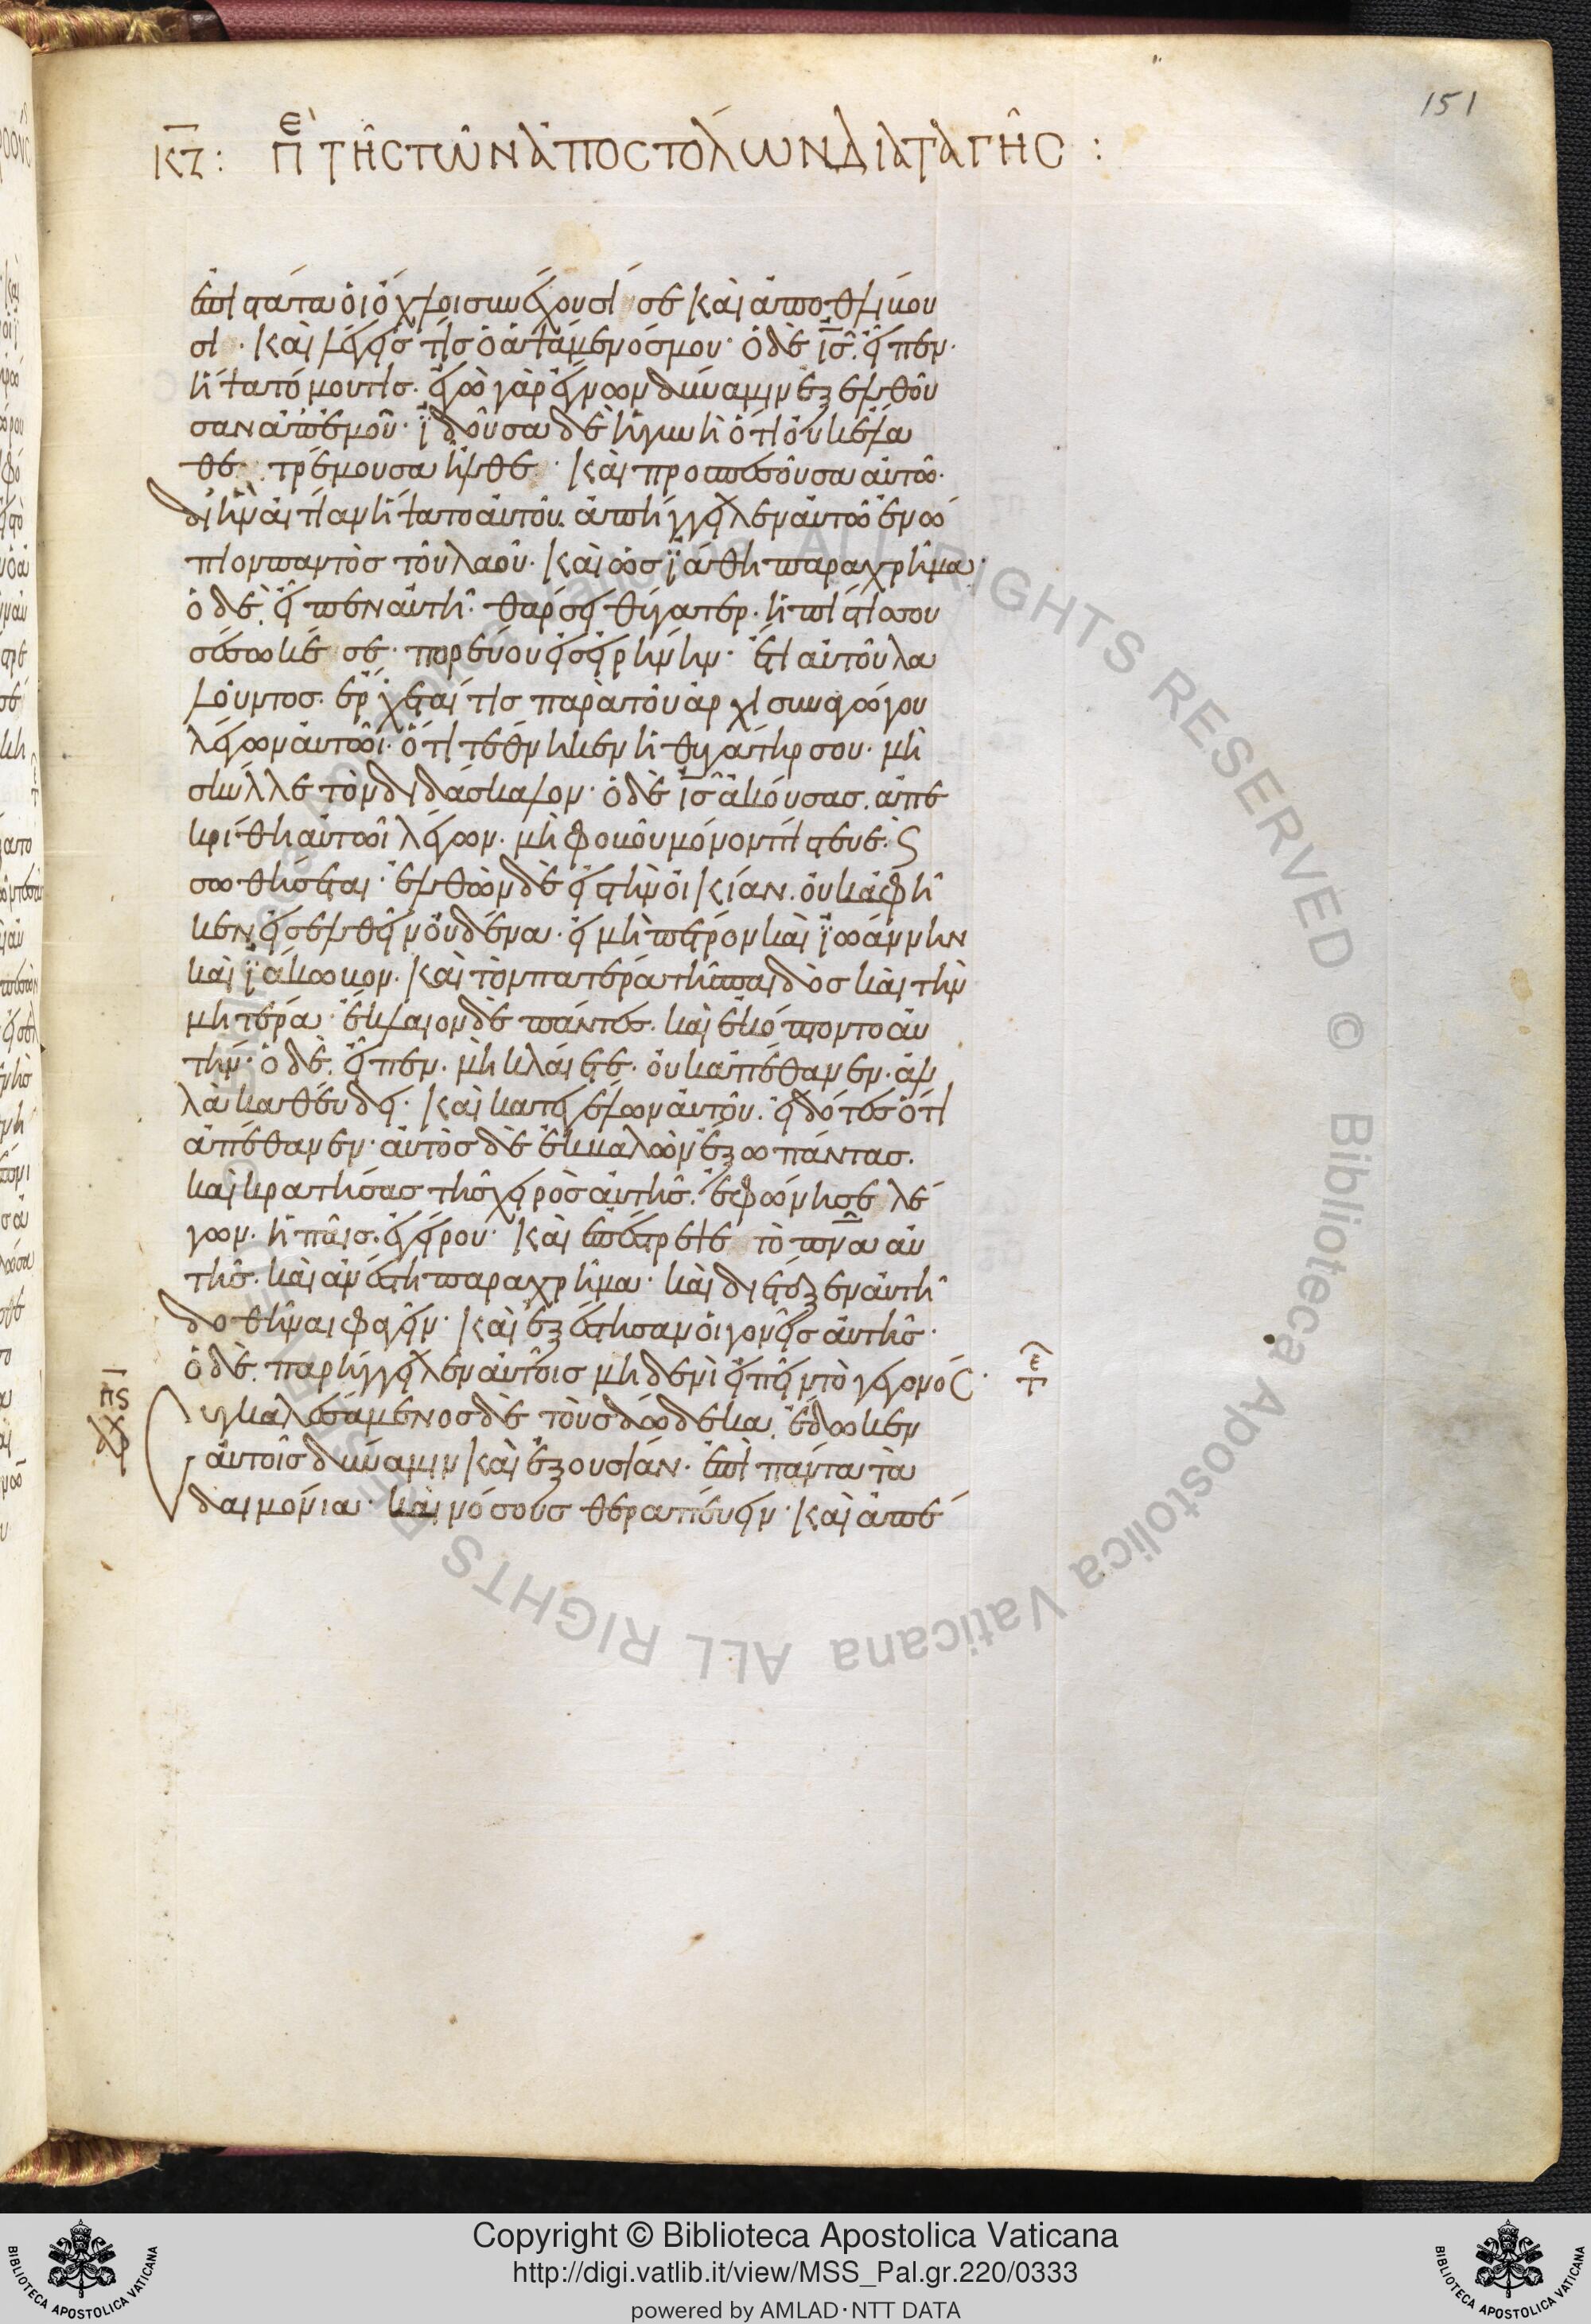 151
κζ: πε τῆς τῶν ἀποστόλων διαταγῆς :
ἐπιστάτα οἱ ὄχλοι συνέχουσί σε καὶ ἀποθλίβου
σι · καὶ λέγεις τίς ὁ ἁψάμενός μου · ὁ δὲ ις. εἶπεν ·
ἥψατό μού τις. ἐγὼ γὰρ ἔγνων δύναμιν ἐξελθοῦ
σαν ἀπ' ἐμοῦ · ἰδοῦσα δὲ ἡ γυνὴ ὅτι οὐκ ἔλα
θε. τρέμουσα ἦλθε · καὶ προπεσοῦσα αὐτῶ ·
δι ἣν αἰτίαν ἥψατο αὐτοῦ. ἀπήγγειλεν αὐτῶ ἐνώ
πιον παντὸς τοῦ λαοῦ · καὶ ὡς ἰάθη παραχρῆμα ·
ὁ δὲ. εἶπεν αὐτῆ · θάρσει θύγατερ. ἡ πίστις σου
σέσωκέ σε · πορεύου εἰς εἰρήνην · ἔτι αὐτοῦ λα
λοῦντος. ἔρχεταί τις παρὰ τοῦ ἀρχισυναγώγου
λέγων αὐτῶι · ὅτι τέθνηκεν ἡ θυγάτηρ σου · μὴ
σκύλλε τὸν διδάσκαλον · ὁ δὲ ις ἀκούσας. ἀπε
κρίθη αὐτῶι λέγων. μὴ φοβοῦ μόνον πίστευε. ς
σωθήσεται · ἐλθὼν δὲ εἰς τὴν οἰκίαν. οὐκ ἀφῆ
κεν εἰσελθεῖν οὐδένα · εἰ μὴ πέτρον καὶ ἰωάννην
καὶ ἰάκωβον · καὶ τὸν πατέρα τῆς παιδὸς καὶ τὴν
μητέρα · ἔκλαιον δὲ πάντες. καὶ ἐκόπτοντο αὐ
τήν · ὁ δὲ. εἶπεν. μὴ κλαίετε. οὐκ ἀπέθανεν · ἀλ
λὰ καθεύδει · καὶ κατεγέλων αὐτοῦ. εἰδότες ὅτι
ἀπέθανεν · αὐτὸς δὲ ἐκβαλὼν ἔξω πάντας.
καὶ κρατήσας τῆς χειρὸς αὐτῆς. ἐφώνησε λέ
γων. ἡ παῖς. ἐγείρου · καὶ ἐπέστρεψε τὸ πνα αὐ
τῆς. καὶ ἀνέστη παραχρῆμα · καὶ διέταξεν αὐτῆ
δοθῆναι φαγεῖν · καὶ ἐξέστησαν οἱ γονεῖς αὐτῆς ·
ὁ δὲ. παρήγγειλεν αὐτοῖς μηδενὶ εἰπεῖν τὸ γεγονός ·
πς
συγκαλεσάμενος δὲ τοὺς δώδεκα. ἔδωκεν
αὐτοῖς δύναμιν καὶ ἐξουσίαν · ἐπὶ πάντα τὰ
δαιμόνια · καὶ νόσους θεραπεύειν · καὶ ἀπέ
Copyright © Biblioteca Apostolica Vaticana
http://digi.vatlib.it/view/MSS_Pal.gr.220/0333
powered by AMLAD·NTT DATA
BIBLIOTECA APOSTOLICA VATICANA
BIBLIOTECA APOSTOLICA VATICANA